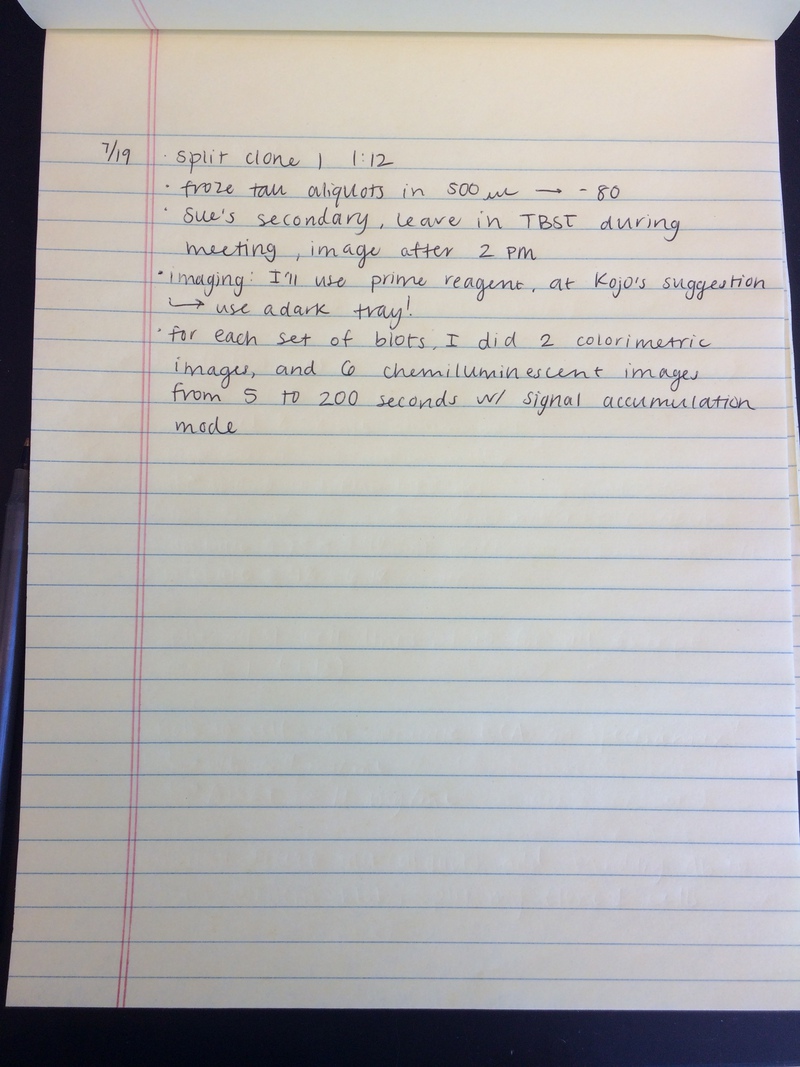 7/19 · split clone 1 1:12
· froze tau aliquots in 500 uL → -80
· Sue's secondary, leave in TBST during
meeting, image after 2 PM
· imaging: I'll use prime reagent, at Kojo's suggestion
↳ use a dark tray!
· for each set of blots, I did 2 colorimetric
images, and 6 chemiluminescent images
from 5 to 200 seconds w/ signal accumulation
mode